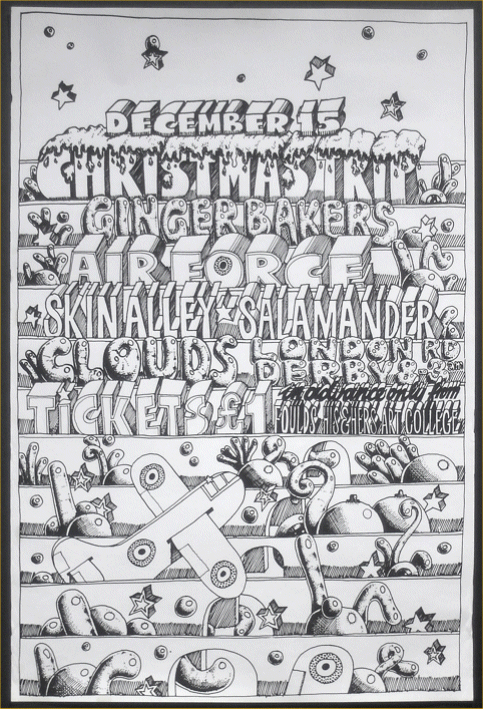 DECEMBER 15
CHRISTMAS TRIP
GINGERBAKERS
AIR FORCE
SKIN ALLEY ☆ SALAMANDER
CLOUDS LONDON RD
DERBY 8
TICKETS £1 in advance only from
FOULDS HIS & HERS ART COLLEGE